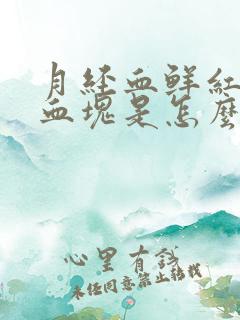 月经血鲜红
血块是怎么
心里有谈
未经同意禁止转载